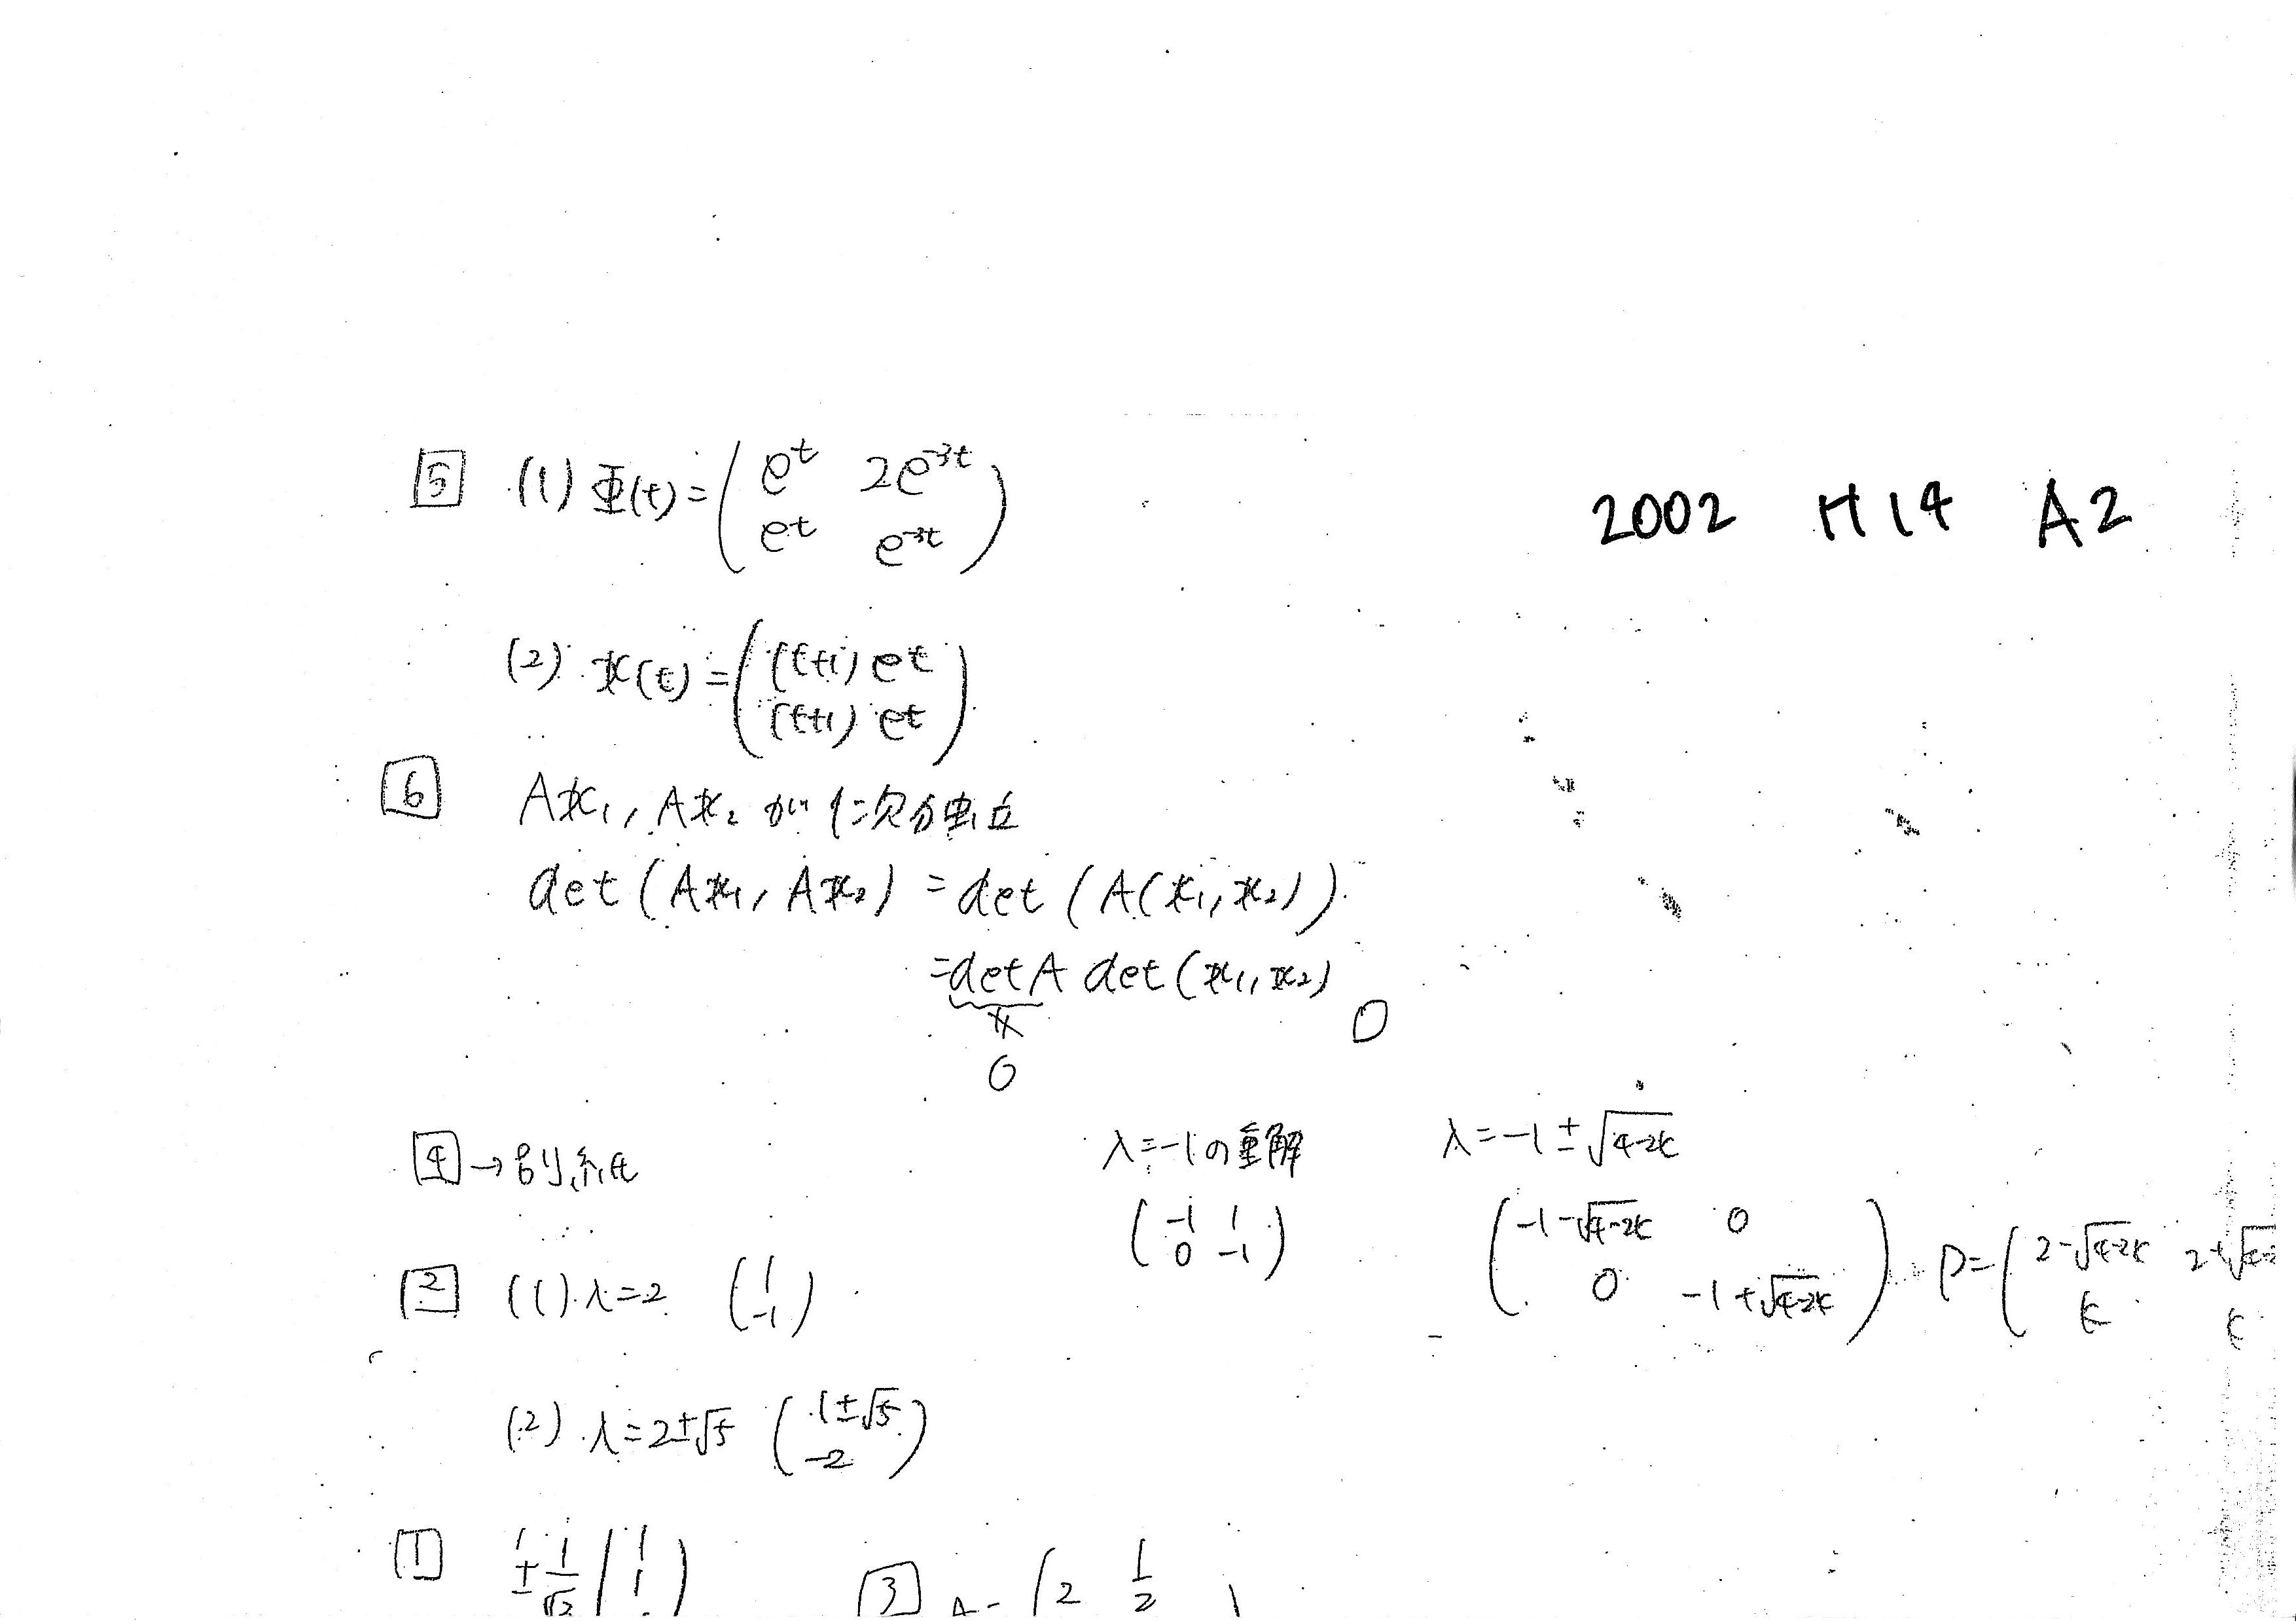 2002 H14 A2
5 (1) Φ(t) = ( e^t 2e^-3t
e^t e^-3t )
(2) x(t) = ( (t+1) e^t
(t+1) e^t )
6 Ax1, Ax2 が1次独立
det (Ax1, Ax2) = det (A(x1, x2))
= det A det (x1, x2)
∦
0 0
4 → 別紙 λ = -1の重解 λ = -1 ± √4-2k
( -1 1
0 -1 )
( -1-√4-2k 0
0 -1+√4-2k ) P = ( 2-√4-2k 2+√4-2
k k
2 (1) λ = 2 ( 1
-1 )
(2) λ = 2±√5 ( 1±√5
-2 )
1 ± 1/√2 ( 1
1 )
3 A = ( 2 1/2